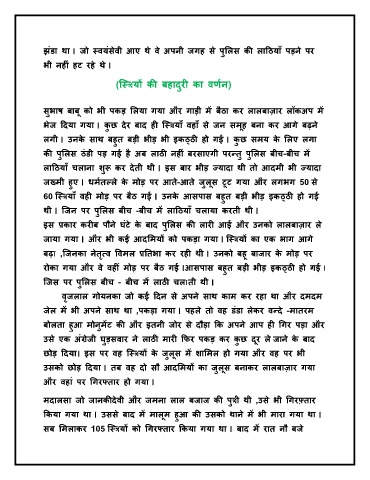 झंडा था । जो स्वयंसेवी आए थे वे अपनी जगह से पुलिस की लाठियाँ पड़ने पर
भी नहीं हट रहे थे ।
(स्त्रियों की बहादुरी का वर्णन)
सुभाष बाबू को भी पकड़ लिया गया और गाड़ी में बैठा कर लालबाज़ार लॉकअप में
भेज दिया गया । कुछ देर बाद ही स्त्रियाँ वहाँ से जन समूह बना कर आगे बढ़ने
लगी । उनके साथ बहुत बड़ी भीड़ भी इकठ्ठी हो गई । कुछ समय के लिए लगा
की पुलिस ठंडी पड़ गई है अब लाठी नहीं बरसाएगी परन्तु पुलिस बीच-बीच में
लाठियाँ चलाना शुरू कर देती थी । इस बार भीड़ ज्यादा थी तो आदमी भी ज्यादा
जख्मी हुए । धर्मतल्ले के मोड़ पर आते-आते जुलूस टूट गया और लगभग 50 से
60 स्त्रियाँ वही मोड़ पर बैठ गई । उनके आसपास बहुत बड़ी भीड़ इकठ्ठी हो गई
थी । जिन पर पुलिस बीच -बीच में लाठियाँ चलाया करती थी ।
इस प्रकार करीब पौने घंटे के बाद पुलिस की लारी आई और उनको लालबाज़ार ले
जाया गया । और भी कई आदमियों को पकड़ा गया । स्त्रियों का एक भाग आगे
बढ़ा ,जिनका नेतृत्व विमल प्रतिभा कर रही थी । उनको बहू बाजार के मोड़ पर
रोका गया और वे वहीं मोड़ पर बैठ गई ।आसपास बहुत बड़ी भीड़ इकठ्ठी हो गई ।
जिस पर पुलिस बीच - बीच में लाठी चलाती थी ।
वृजलाल गोयनका जो कई दिन से अपने साथ काम कर रहा था और दमदम
जेल में भी अपने साथ था ,पकड़ा गया । पहले तो वह डंडा लेकर वन्दे -मातरम
बोलता हुआ मोनुमेंट की और इतनी जोर से दौड़ा कि अपने आप ही गिर पड़ा और
उसे एक अंग्रेजी घुड़सवार ने लाठी मारी फिर पकड़ कर कुछ दूर ले जाने के बाद
छोड़ दिया। इस पर वह स्त्रियों के जुलूस में शामिल हो गया और वह पर भी
उसको छोड़ दिया । तब वह दो सौ आदमियों का जुलूस बनाकर लालबाज़ार गया
और वहां पर गिरफ्तार हो गया ।
मदालसा जो जानकीदेवी और जमना लाल बजाज की पुत्री थी ,उसे भी गिरफ़्तार
किया गया था । उससे बाद में मालूम हुआ की उसको थाने में भी मारा गया था ।
सब मिलाकर 105 स्त्रियों को गिरफ्तार किया गया था । बाद में रात नौ बजे